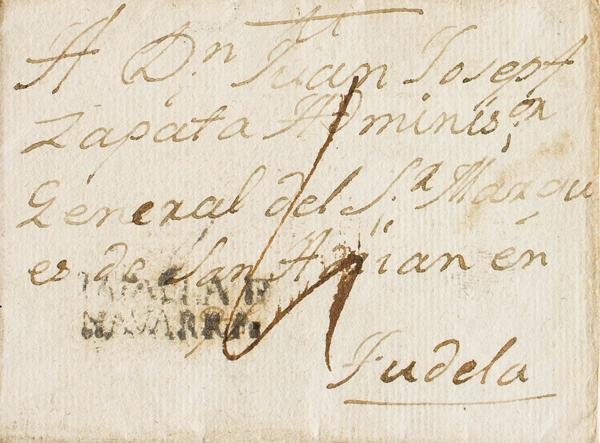 A Dn. Juan Josepf
Zapata Adminisor
General del S.r Marqu
es de San Adrian en
NAVARRA
Tudela